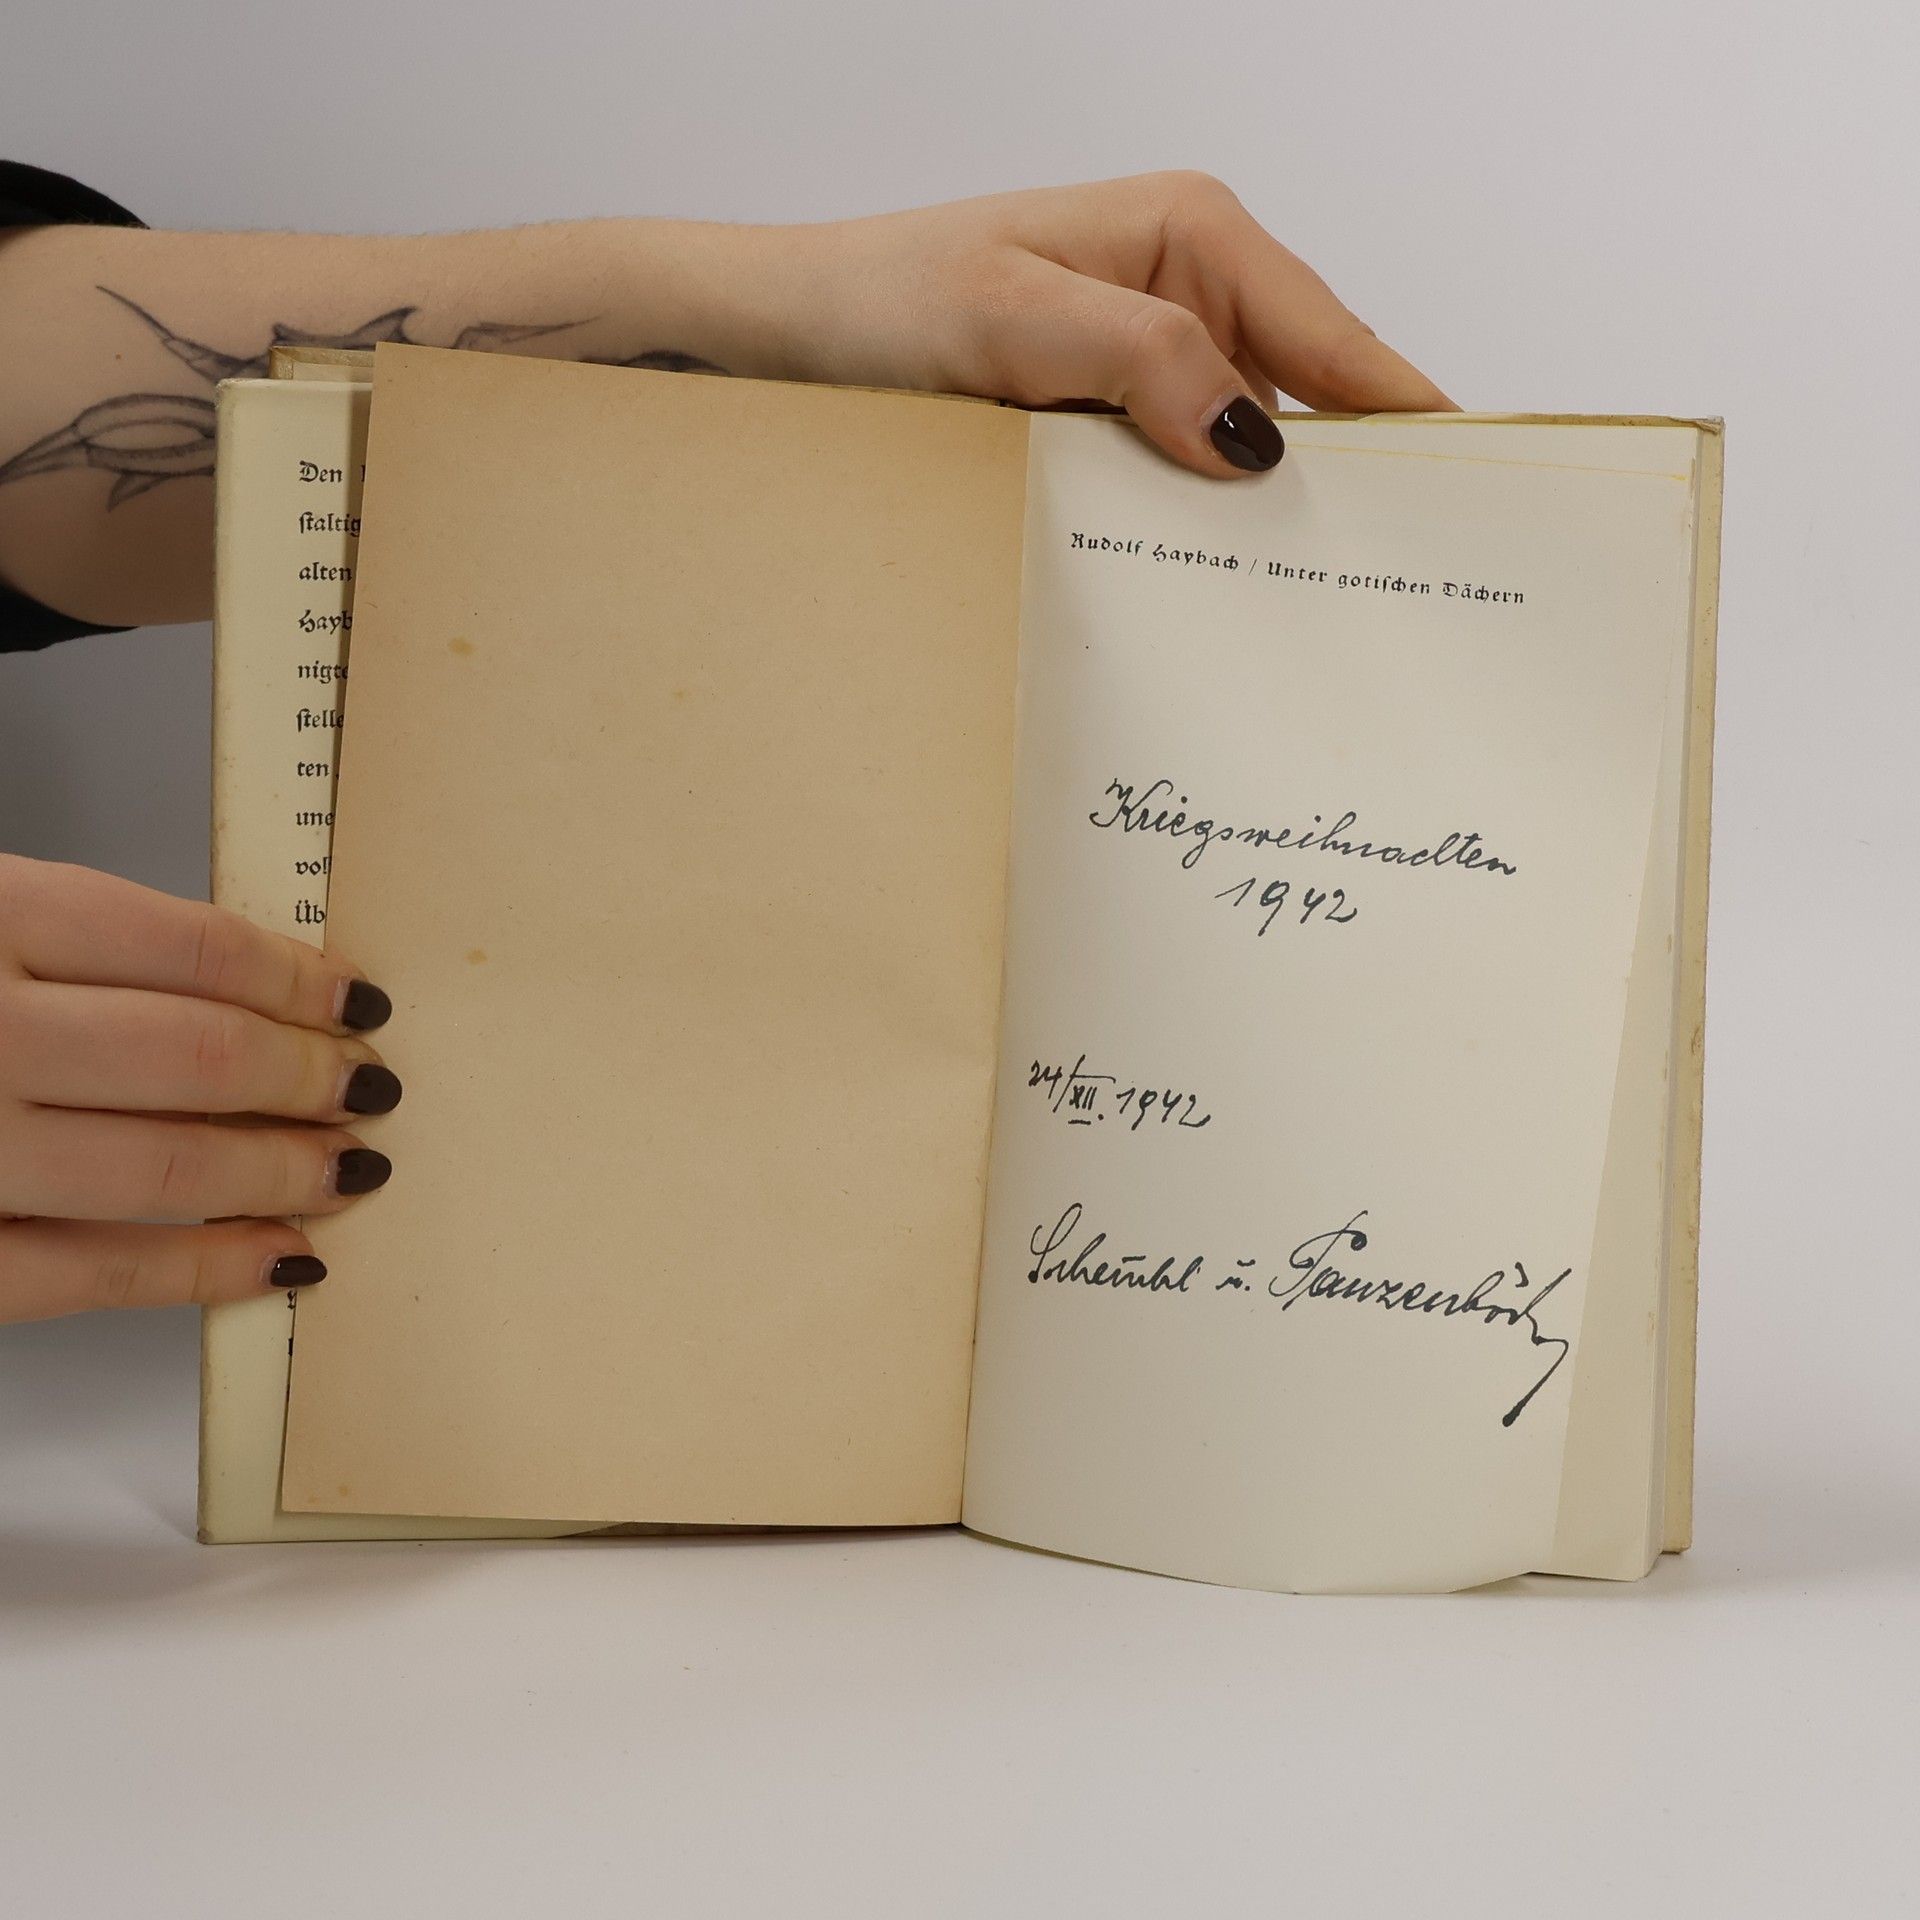 Den
staltig
alten
Hayb
nigte
stelle
ten
une
voll
Üb
Rudolf Haybach / Unter gotischen Dächern
Kriegsweihnachten
1942
24/XII. 1942
u. Panzenböck